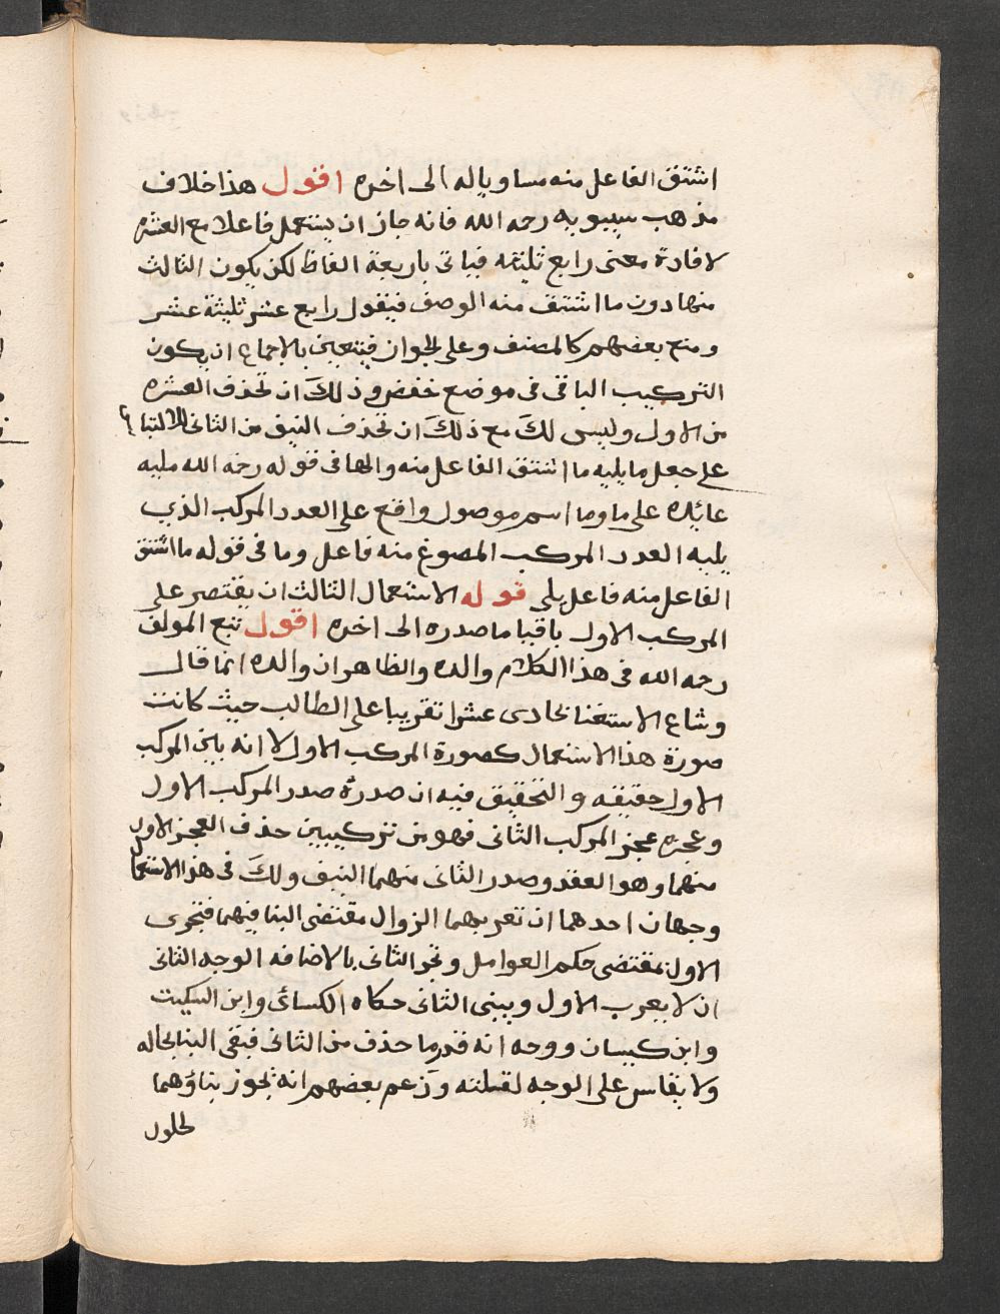 اشتق الفاعل منه مساويا له الى اخره اقول هذا خلاف
مذهب سيبويه رحمه الله فانه جاز ان يستعمل فاعلا مع العشره
لافادة معنى رابع ثلثة فياتى باربعة الفاظ لكن يكون الثالث
منها دون ما اشتق منه الوصف فيقول رابع عشر ثلثة عشر
ومنع بعضهم كالمصنف وعلى الجواز فيتعين بالاجماع ان يكون
التركيب الباقى فى موضع خفض وذلك ان تحذف العشره
من الاول وليس لك مع ذلك ان تحذف النيف من الثانى للالتباس
على جعل ما يليه ما اشتق الفاعل منه والها فى قوله رحمه الله مليه
عائده على ما وما اسم موصول واقع على العدد المركب الذي
يليه العدد المركب المصوغ منه فاعل وما فى قوله ما اشتق
الفاعل منه فاعل يلى قوله الاستعمال الثالث ان يقتصر على
المركب الاول باقيا ما صدره الى اخره اقول تبع المولف
رحمه الله فى هذا الكلام والده والظاهر ان والده انما قال
وشاع الاستغنا بحادى عشرا تقريبا على الطالب حيث كانت
صورة هذا الاستعمال كصورة المركب الاول لا انه باين المركب
الاول حقيقه والتحقيق فيه ان صدره صدر المركب الاول
وعجزه عجز المركب الثانى فهو من تركيبين حذف العجز الاول
منهما وهو العقد وصدر الثانى منهما النيف ولك فى هذا الاستعمال
وجهان احدهما ان تعربهما لزوال مقتضى البنا فيهما فتجرى
الاول بمقتضى حكم العوامل وتجر الثانى بالاضافه الوجه الثانى
ان لا يعرب الاول ويبنى الثانى حكاه الكسائى وابن السكيت
وابن كيسان ووجه انه قدر ما حذف من الثانى فبقى البنا بحاله
ولا يقاس على الوجه لقلته وزعم بعضهم انه يجوز بناؤهما
لحلول